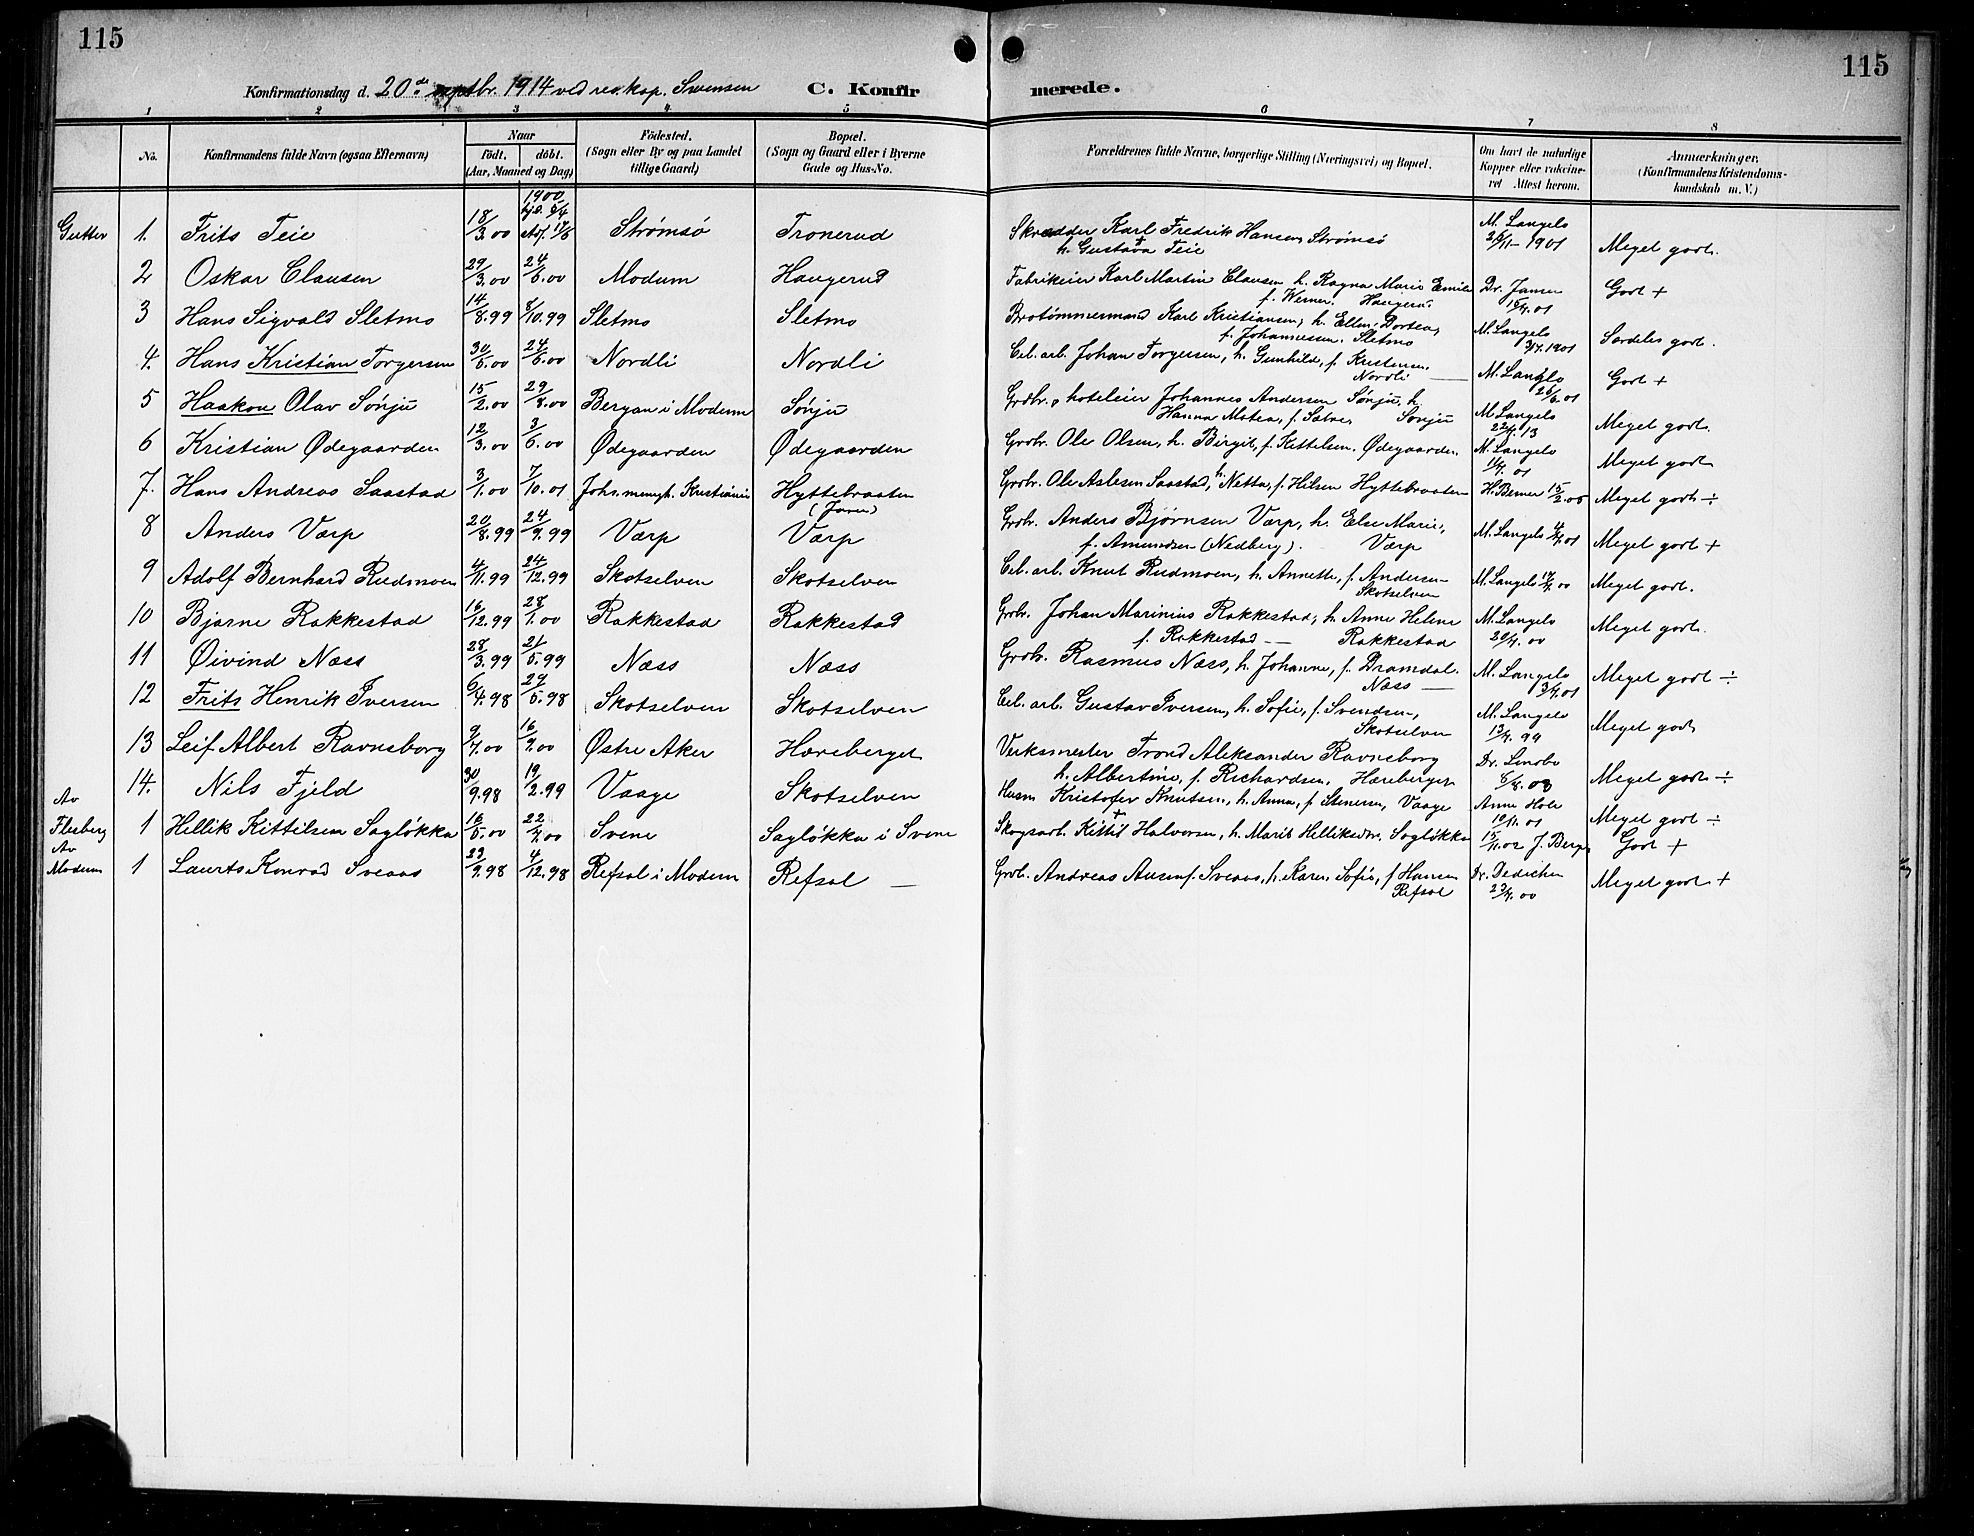 115
115
Konfirmationsdag d. 20de septbr. 1914 ved res. kap. Svensen C. Konfir merede.
1 2 3 4 5 6 7 8
No.
Konfirmandens fulde Navn (ogsaa Efternavn)
Naar
födt. döbt.
(Aar, Maaned og Dag)
Födested.
(Sogn eller By og paa Landet
tillige Gaard)
Bopæl.
(Sogn og Gaard eller i Byerne
Gade og Hus-No.
Forældrenes fulde Navne, borgerlige Stilling (Næringsvei) og Bopæl.
Om havt de naturlige
Kopper eller vakcine-
ret Attest herom.
Anmærkninger.
(Konfirmandens Kristendoms-
kundskab m. V.)
Gutter 1. Frits Teie 18/3.00 1900 hjd. 9/4 Strømsø Tronerud Skrædder Karl Fredrik Hansen Strømsø M. Langelo
h. Gustava Teie 1901 Meget godt.
2 Oskar Clausen 29/3.00 24/6.00 Modum Haugerud Fabrikeier Karl Martin Clausen h. Ragna Marie Emilie Dr. Jansen Godt +
f. Werner. Haugerud 15/4.01
3 Hans Sigvald Sletmo 14/8.99 8/10.99 Sletmo Sletmo Brotømmermand Karl Kristiansen, h. Ellen Dortea, M. Langelo Særdeles godt.
f. Johannessen. Sletmo 3/7.1901
4. Hans Kristian Torgersen 30/5.00 24/6.00 Nordli Nordli Cel. arb. Johan Torgersen, h. Gunhild, f. Kristensen M. Langlo Godt +
Nordli 26/6.01
5 Haakon Olav Sönju 15/2.00 29/8.00 Bergan i Modum Sönju Grdbr. o hoteleier Johannes Andersen Sönju, h. M. Langelo Meget godt.
Hanna Matea, f. Sønju 22/4.13
6 Kristian Ødegaarden 12/3.00 3/6.00 Ødegaarden Ødegaarden Grdbr. Ole Olsen, h. Birgit, f. Kittelsen. Ødegaarden M. Langelo Meget godt
7. Hans Andreas Saastad 3/1.00 7/10.01 Johs. mengh. Kristiania Hyttebraaten Grdbr. Ole Aslesen Saastad, h. Netta, f. Hilsen Hyttebraaten H. Berner 15/2.05 Meget godt ÷
8 Anders Værp 20/8.99 24/9.99 Værp Værp Grdbr. Anders Bjørnsen Værp, h. Else Marie, M. Langelo Meget godt +
f. Amundsen (Nedberg). Værp
9 Adolf Bernhard Rudmoen 4/11.99 24/12.99 Skotselven Skotselven Cel. arb. Knut Rudmoen, h. Annette, f. Andersen M. Langelo Meget godt.
Skotselven
10 Bjarne Rakkestad 16/12.99 28/1.00 Rakkestad Rakkestad Grdbr. Johan Marinius Rakkestad, h. Anne Helene M. Langelo Meget godt.
f. Rakkestad — Rakkestad 20/4.00
11 Øivind Næss 28/3.99 21/5.99 Næss Næss Grdbr. Rasmus Næss, h. Johanne, f. Dramdal. M. Langelo Meget godt ÷
Næss —
12 Frits Henrik Iversen 6/4.98 29/5.98 Skotselven Skotselven Cel. arb. Gustav Iversen, h. Sofie, f. Svendsen, M. Langelo Meget godt
Skotselven
13 Leif Albert Ravnsborg 9/7.00 16/9.00 Østre Aker Høreberget Verksmester Trond Aleksander Ravnsborg Dr. Lindbo
h. Albertine, f. Richardsen, Høreberget 6/8.08 Meget godt ÷
14. Nils Fjeld 30/9.98 19/2.99 Vaage Skotselven Husm Kristofer Knutsen, h. Anna, f. Stenersen, Vaage Anne Hole 10/11.01 Meget godt ÷
Av
Flesberg 1 Hellik Kittilsen Sagløkka 16/5.00 22/7.00 Svene Sagløkka i Svene Skogsarb. Kittil Halvorsen, h. Marit Helliksdtr. Sagløkka 15/11.02 J. Berg Godt +
Av
Modum 1 Laurts Konrad Sveaas 23/9.98 4/12.98 Refsal i Modum Refsal — Grdb. Andreas Sveaas, h. Karen Sofie, f Hansen Dr. Dedichen Meget godt +
Refsal 23/4.00